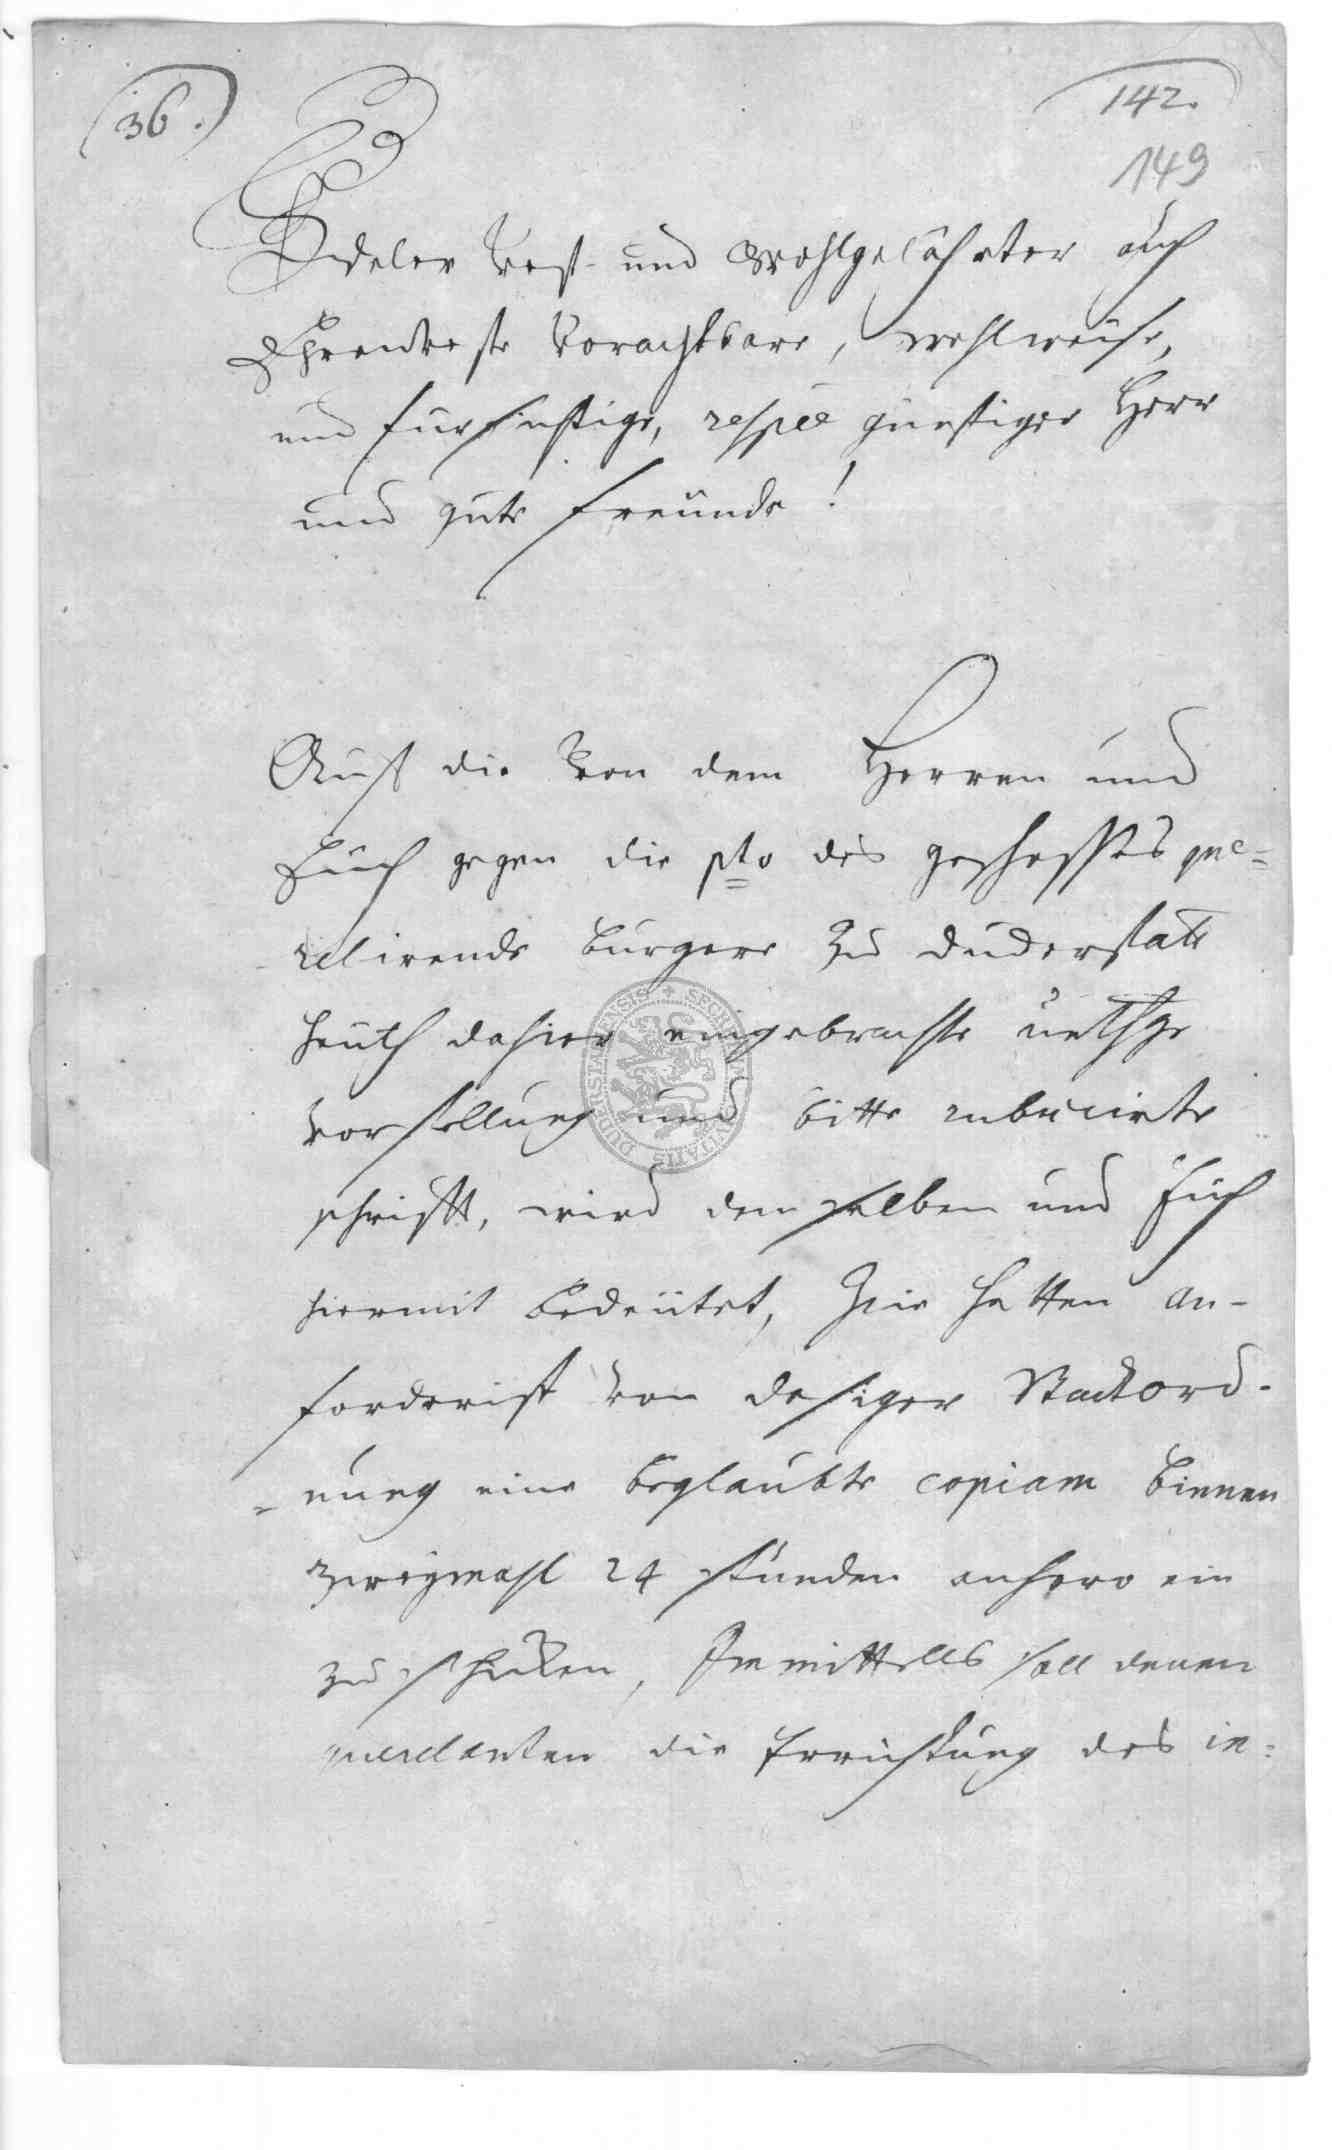 36.
142.
149
Edeler Vest- und Wohlgelährter auch
Ehrenveste Vorachtbare, wohlweise,
und fürsichtige, respée günstiger Herr
und gute freünde!
Auff die von dem Herren und
Eüch gegen die pto des geschosses que=
relirende bürgere zu duderstatt
heüth dahier eingebrachte
vorstellung und bitte rubricirte
schrifft, wird demselben und Eüch
hiermit bedeütet, Hie hetten an-
forderist von dasiger Stadtord-
=nung eine beglaubte copiam binnen
zweymahl 24 stunden anhero ein
zu schicken, Inmittells soll denen
querelanten die Errichtung des in=
SECRETUM CIVITATIS DUDERSTADENSIS